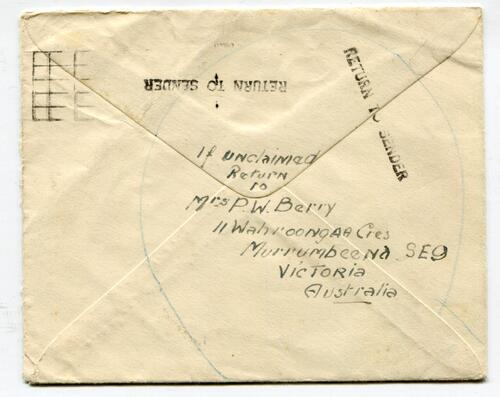 RETURN TO SENDER
RETURN TO SENDER
If unclaimed
Return
to
Mrs P.W. Berry
11 Wahroongaa Cres
Murrumbeena SE9
VICTORIA
Australia